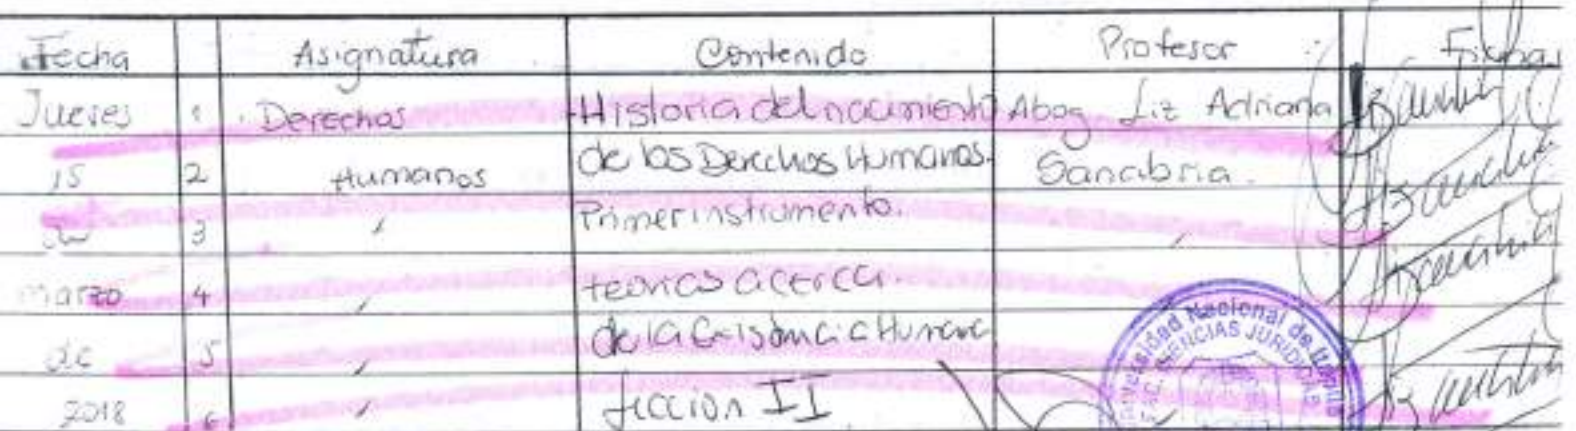 Fecha Asignatura Contenido Profesor Firma
Jueves 1 Derechos Historia del nacimiento Abog Liz Adriana
15 2 Humanos de los Derechos Humanos. Sanabria.
3 Primer instrumento.
marzo 4 teorias acerca.
de 5 de la Existencia Humana
2018 6 Sección II
Universidad Nacional de Itapúa
FAC. CIENCIAS JURIDICAS